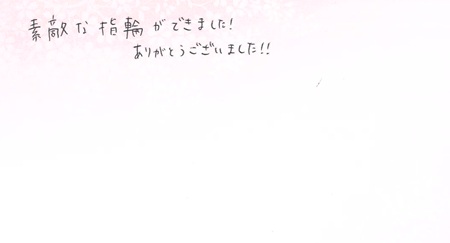 素敵な指輪ができました!
ありがとうございました!!